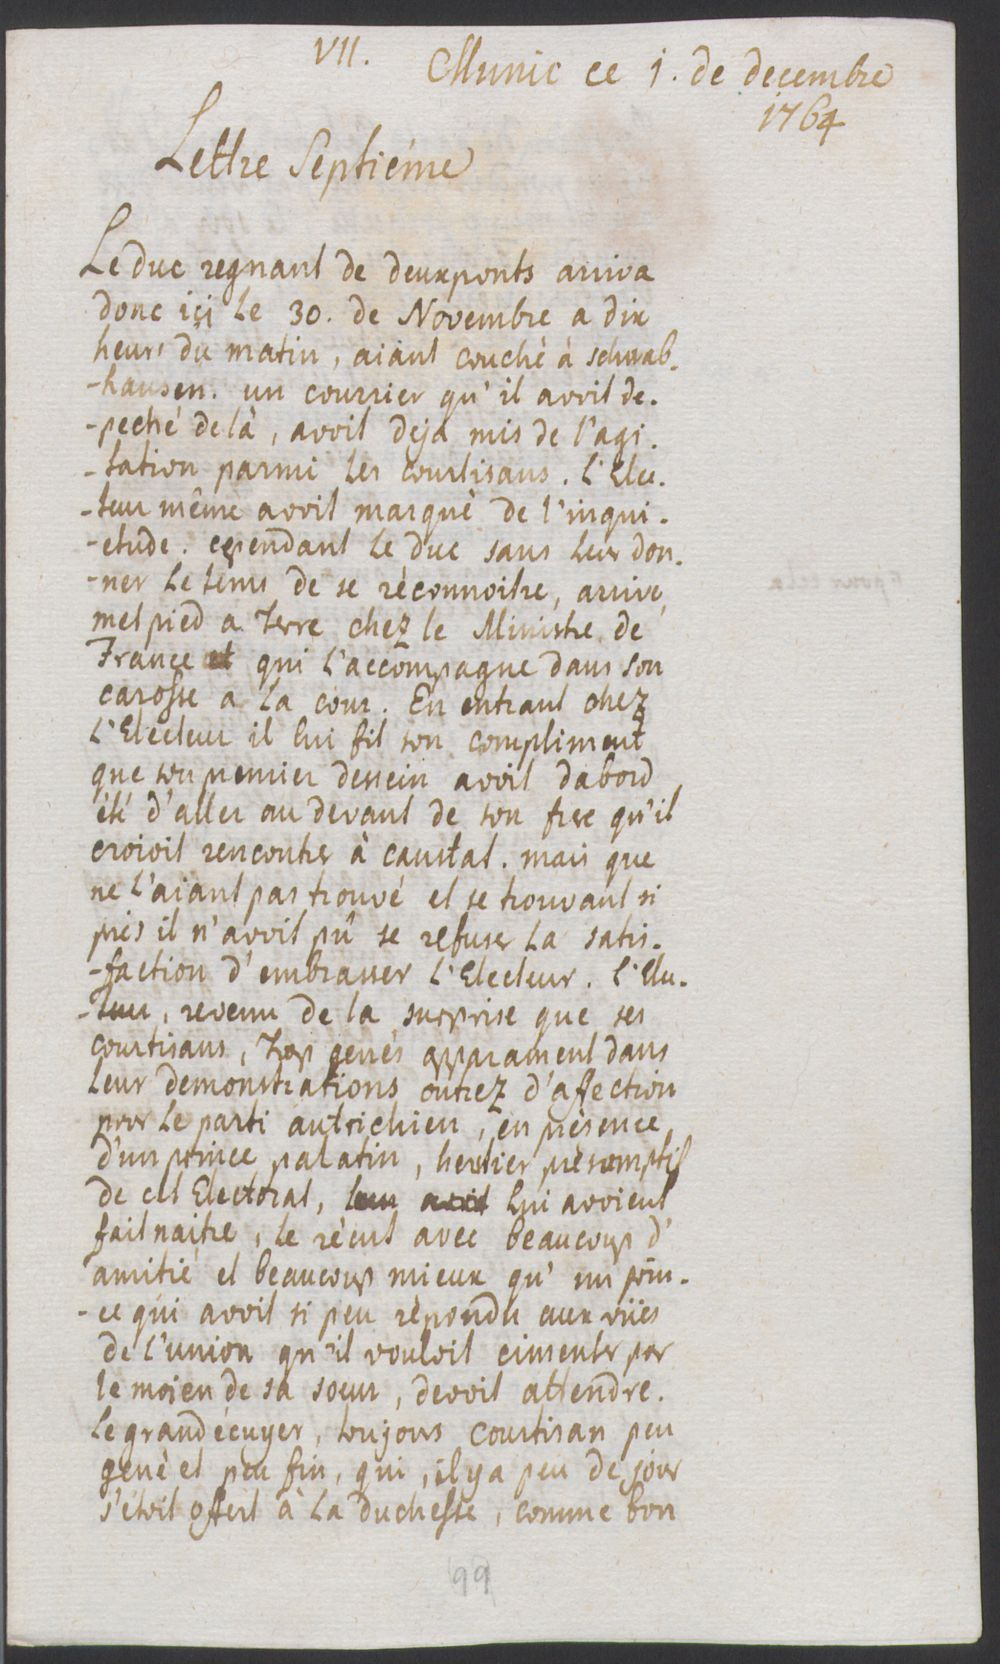 VII.
Munic ce 1. de decembre
1764
Lettre Septiéme
Le Duc regnant de deuxponts arriva
donc içi Le 30. de Novembre a dix
heurs du matin, aiant couché à schwab-
-hausen. un courrier qu'il avoit de-
-peché de là, avoit deja mis de l'agi-
-tation parmi Les courtisans. L'Elec-
-teur même avoit marqué de l'inqui-
-etude. cependant Le Duc sans Leur don-
-ner Le tems de se réconnoitre, arrive,
met pied a Terre chez le Ministre de
France et qui L'accompagne dans son
carosse a La cour. En entrant chez
L'Electeur il Lui fit son compliment
que son premier dessein avoit dabord
été d'aller au devant de son frere qu'il
croioit rencontrer à canstat. mais que
ne L'aiant pas trouvé et se trouvant si
prés il n'avoit pû se refuser La satis-
-faction d'embrasser L'Electeur. L'Elec-
-teur, revenu de la surprise que ses
courtisans, Trop genés apparament dans
Leur demonstrations outrez d'affection
pour Le parti autrichien, en présence
d'un prince palatin, heritier présomptif
de cet Electorat, Lui avoient
fait naitre, Le réçut avec beaucoup d'
amitié et beaucoup mieux qu'un prin-
-ce qui avoit si peu répondu aux vües
de L'union qu'il vouloit cimenter par
le moien de sa soeur, devoit attendre.
Le grand écuyer, toujours courtisan peu
gené et peu fin, qui, il y a peu de jours
s'étoit offert à La Duchesse, comme bon
99